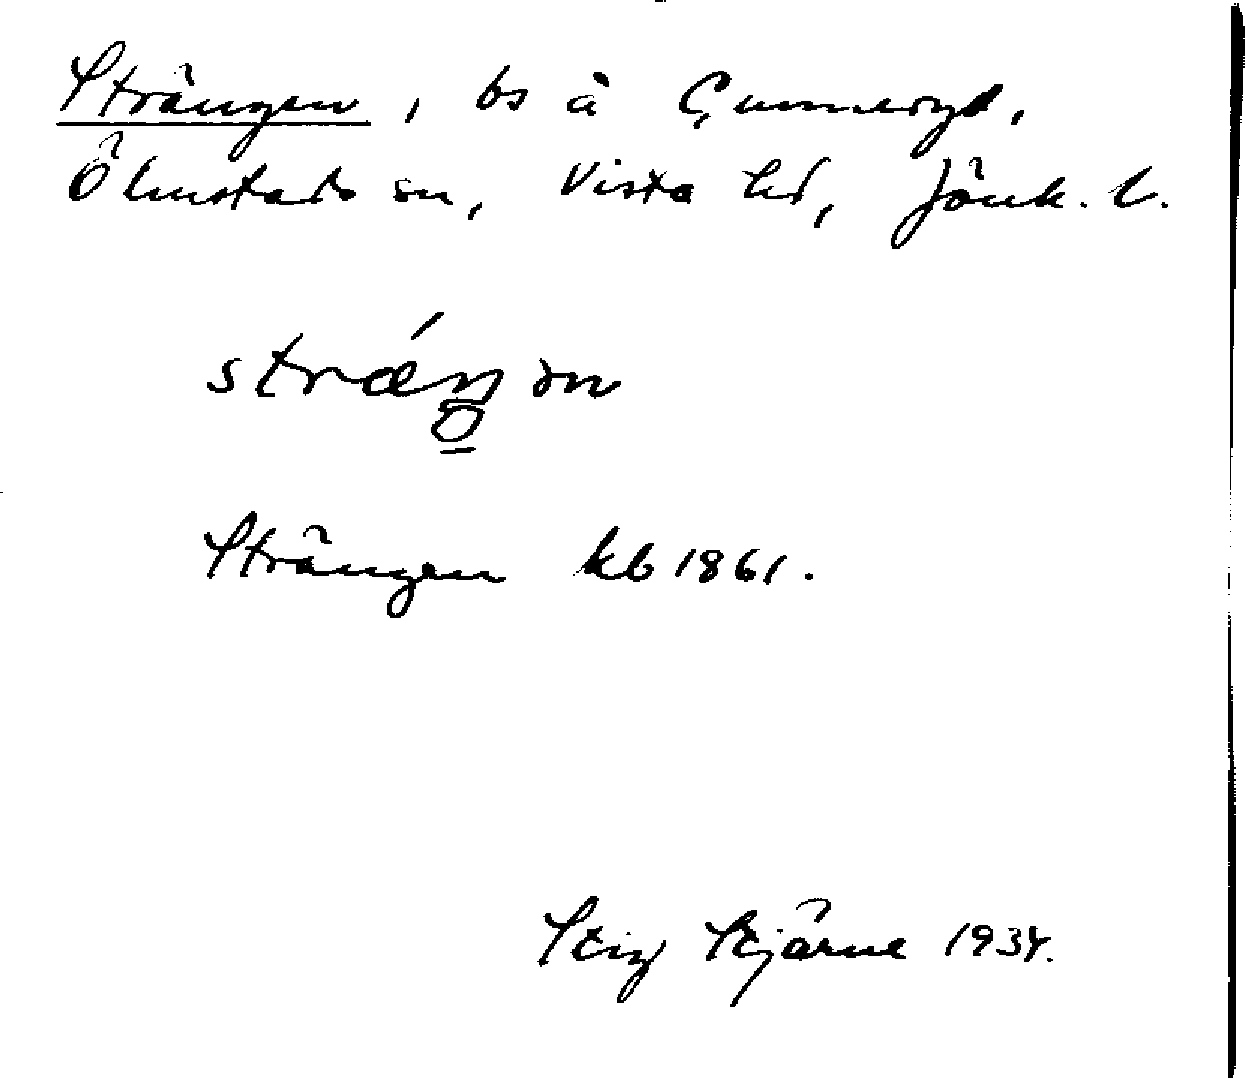 Strängen, bs å Gunneryd,
Ölmstads sn, Vista hd, Jönk. l.
strǽŋən
Strängen kb 1861.
Stig Stjärne 1934.